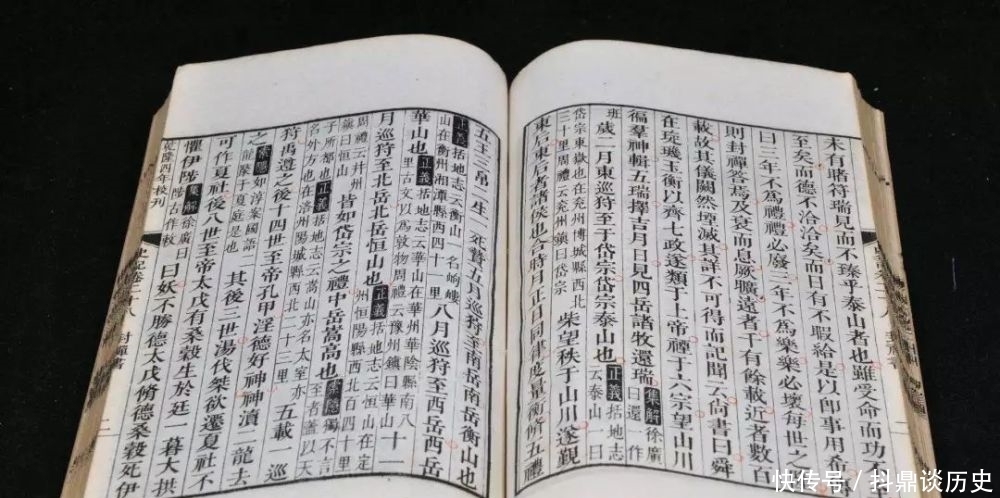 未有睹符瑞見而不臻乎泰山者也雖受命而功
至矣而德不洽洽矣而日有不暇給是以即事用希
曰三年不為禮禮必廢三年不為樂樂必壞每世之
則封禪答焉及衰而息厥曠遠者千有餘載近者數百
載故其儀闕然堙滅其詳不可得而記聞云尚書曰舜
在琁璣玉衡以齊七政遂類于上帝禋于六宗望山川
徧羣神輯五瑞擇吉月日見四岳諸牧還瑞集解徐廣曰還作
班歲二月東巡狩至于岱宗岱宗泰山也正義括地志云泰山一曰
岱宗東嶽也在兗州博城縣西北三十里周禮云兗州鎮曰岱宗柴望秩于山川遂覲
東后東后者諸侯也合時月正日同律度量衡脩五禮
五玉三帛二生一死贄五月巡狩至南岳南岳衡山也
正義括地志云衡山一名岣嶁山在衡州湘潭縣西四十一里八月巡狩至西岳西岳
華山也正義括地志云華山在華州華陰縣南八里古文以為敦物周禮云豫州鎮曰華山十一
月巡狩至北岳北岳恒山也正義括地志云恒山在定州恒陽縣西北百四十里
周禮云并州鎮曰恒山皆如岱宗之禮中岳嵩高也索隱獨不言至者蓋以天
子所都也正義括地志云嵩山亦名太室亦名外方也在洛州陽城縣西北二十三里五載一巡
狩禹遵之後十四世至帝孔甲淫德好神神瀆二龍去
之索隱如淳案國語二龍漦于夏庭是也其後三世湯伐桀欲遷夏社不
可作夏社後八世至帝太戊有桑穀生於廷一暮大拱
懼伊陟集解徐廣曰陟古作敕曰妖不勝德太戊脩德桑穀死伊
乾隆四年校刊
史記卷二十八 封禪書
二
快传号/抖鼎谈历史